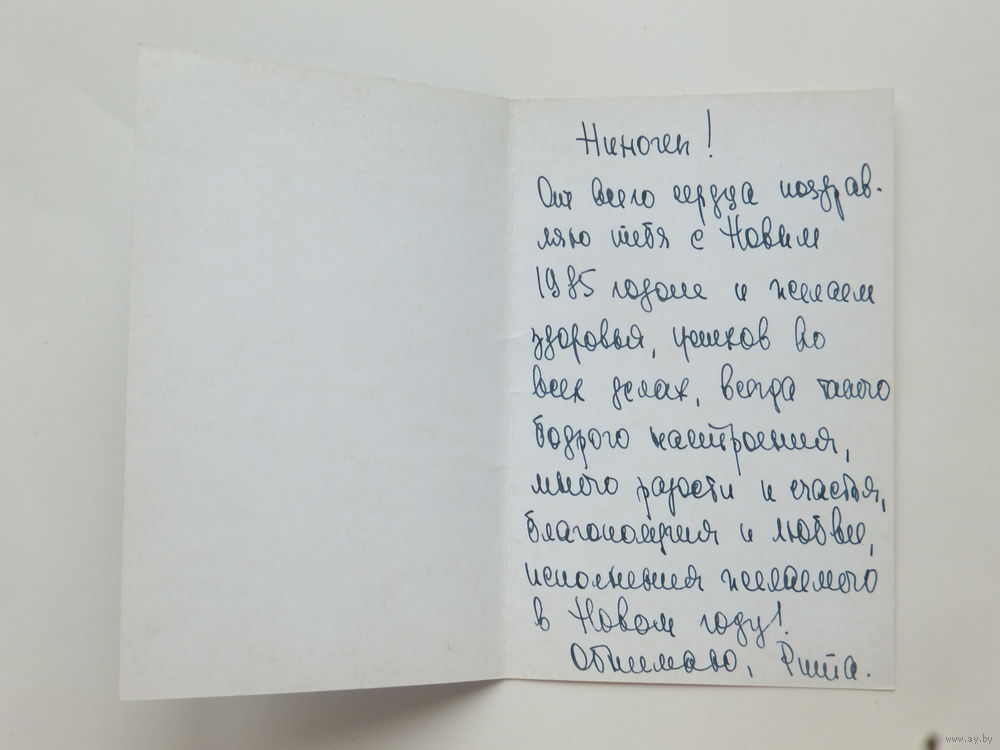 Ниночек!
От всего сердца поздрав-
ляю тебя с Новым
1985 годом и желаем
здоровья, успехов во
всех делах, всегда такого
бодрого настроения,
много радости и счастья,
благополучия и любви,
исполнения желаемого
в Новом году!
Обнимаю, Рита.
www.ay.by